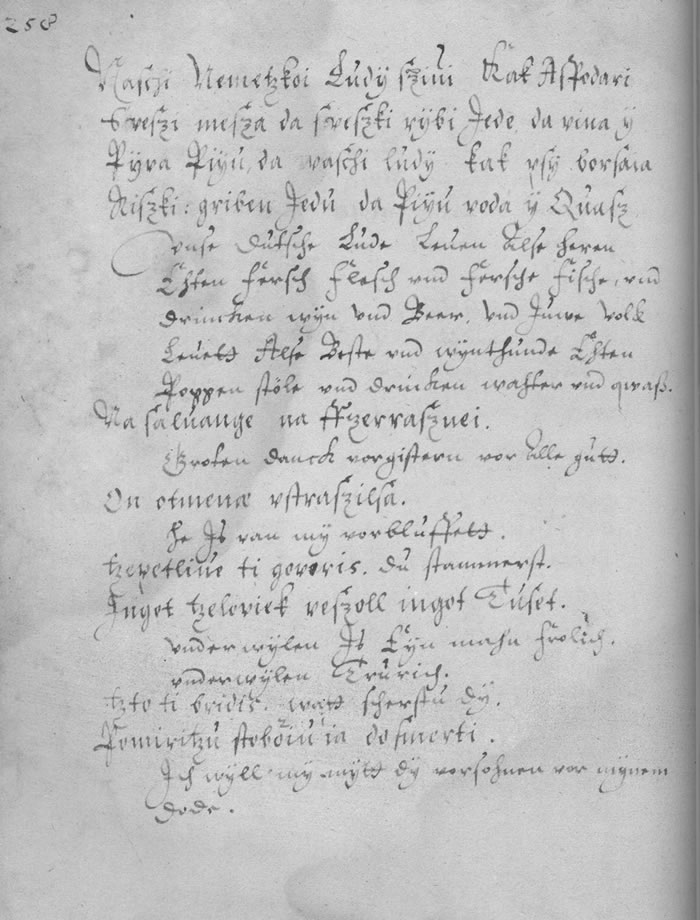 258
Naschi Nemetzkoi Ludy szivi Kak Aspodari
Sveszi mesza da sveszki rybi Jede da vina ÿ
Pÿva Pÿu, da vaschi ludÿ kak psÿ borsaia
Niszki: griben Jedu da Pÿu voda ÿ Quasz
vnse dutsche Lude Leuen Alse heren
Ehten fersch flesch vnd fersche fische, vnd
drincken wÿn vnd Beer, vnd Juwe volk
Leuett Alse Beste vnd wÿnthunde Ehten
Poppen stöle vnd drincken wahter vnd qwaß.
Na saluange na
Groten danck vorgistern vor Alle gutt.
On otmenæ vstraszilsa.
he Js van mÿ vorbluffett.
tzepetlive ti govoris. du stammerst.
Jngot tzeloviek veszoll ingot Tuset.
vnderwÿlen Js Eÿn mahn frölich.
vnderwÿlen Trurich.
tzto ti bridis. watt scherstu dÿ.
Pomiritzu stoboiu ia dosmerti.
Jch wÿll mÿ mÿtt dÿ vorsohnen vor mÿnem
dode.